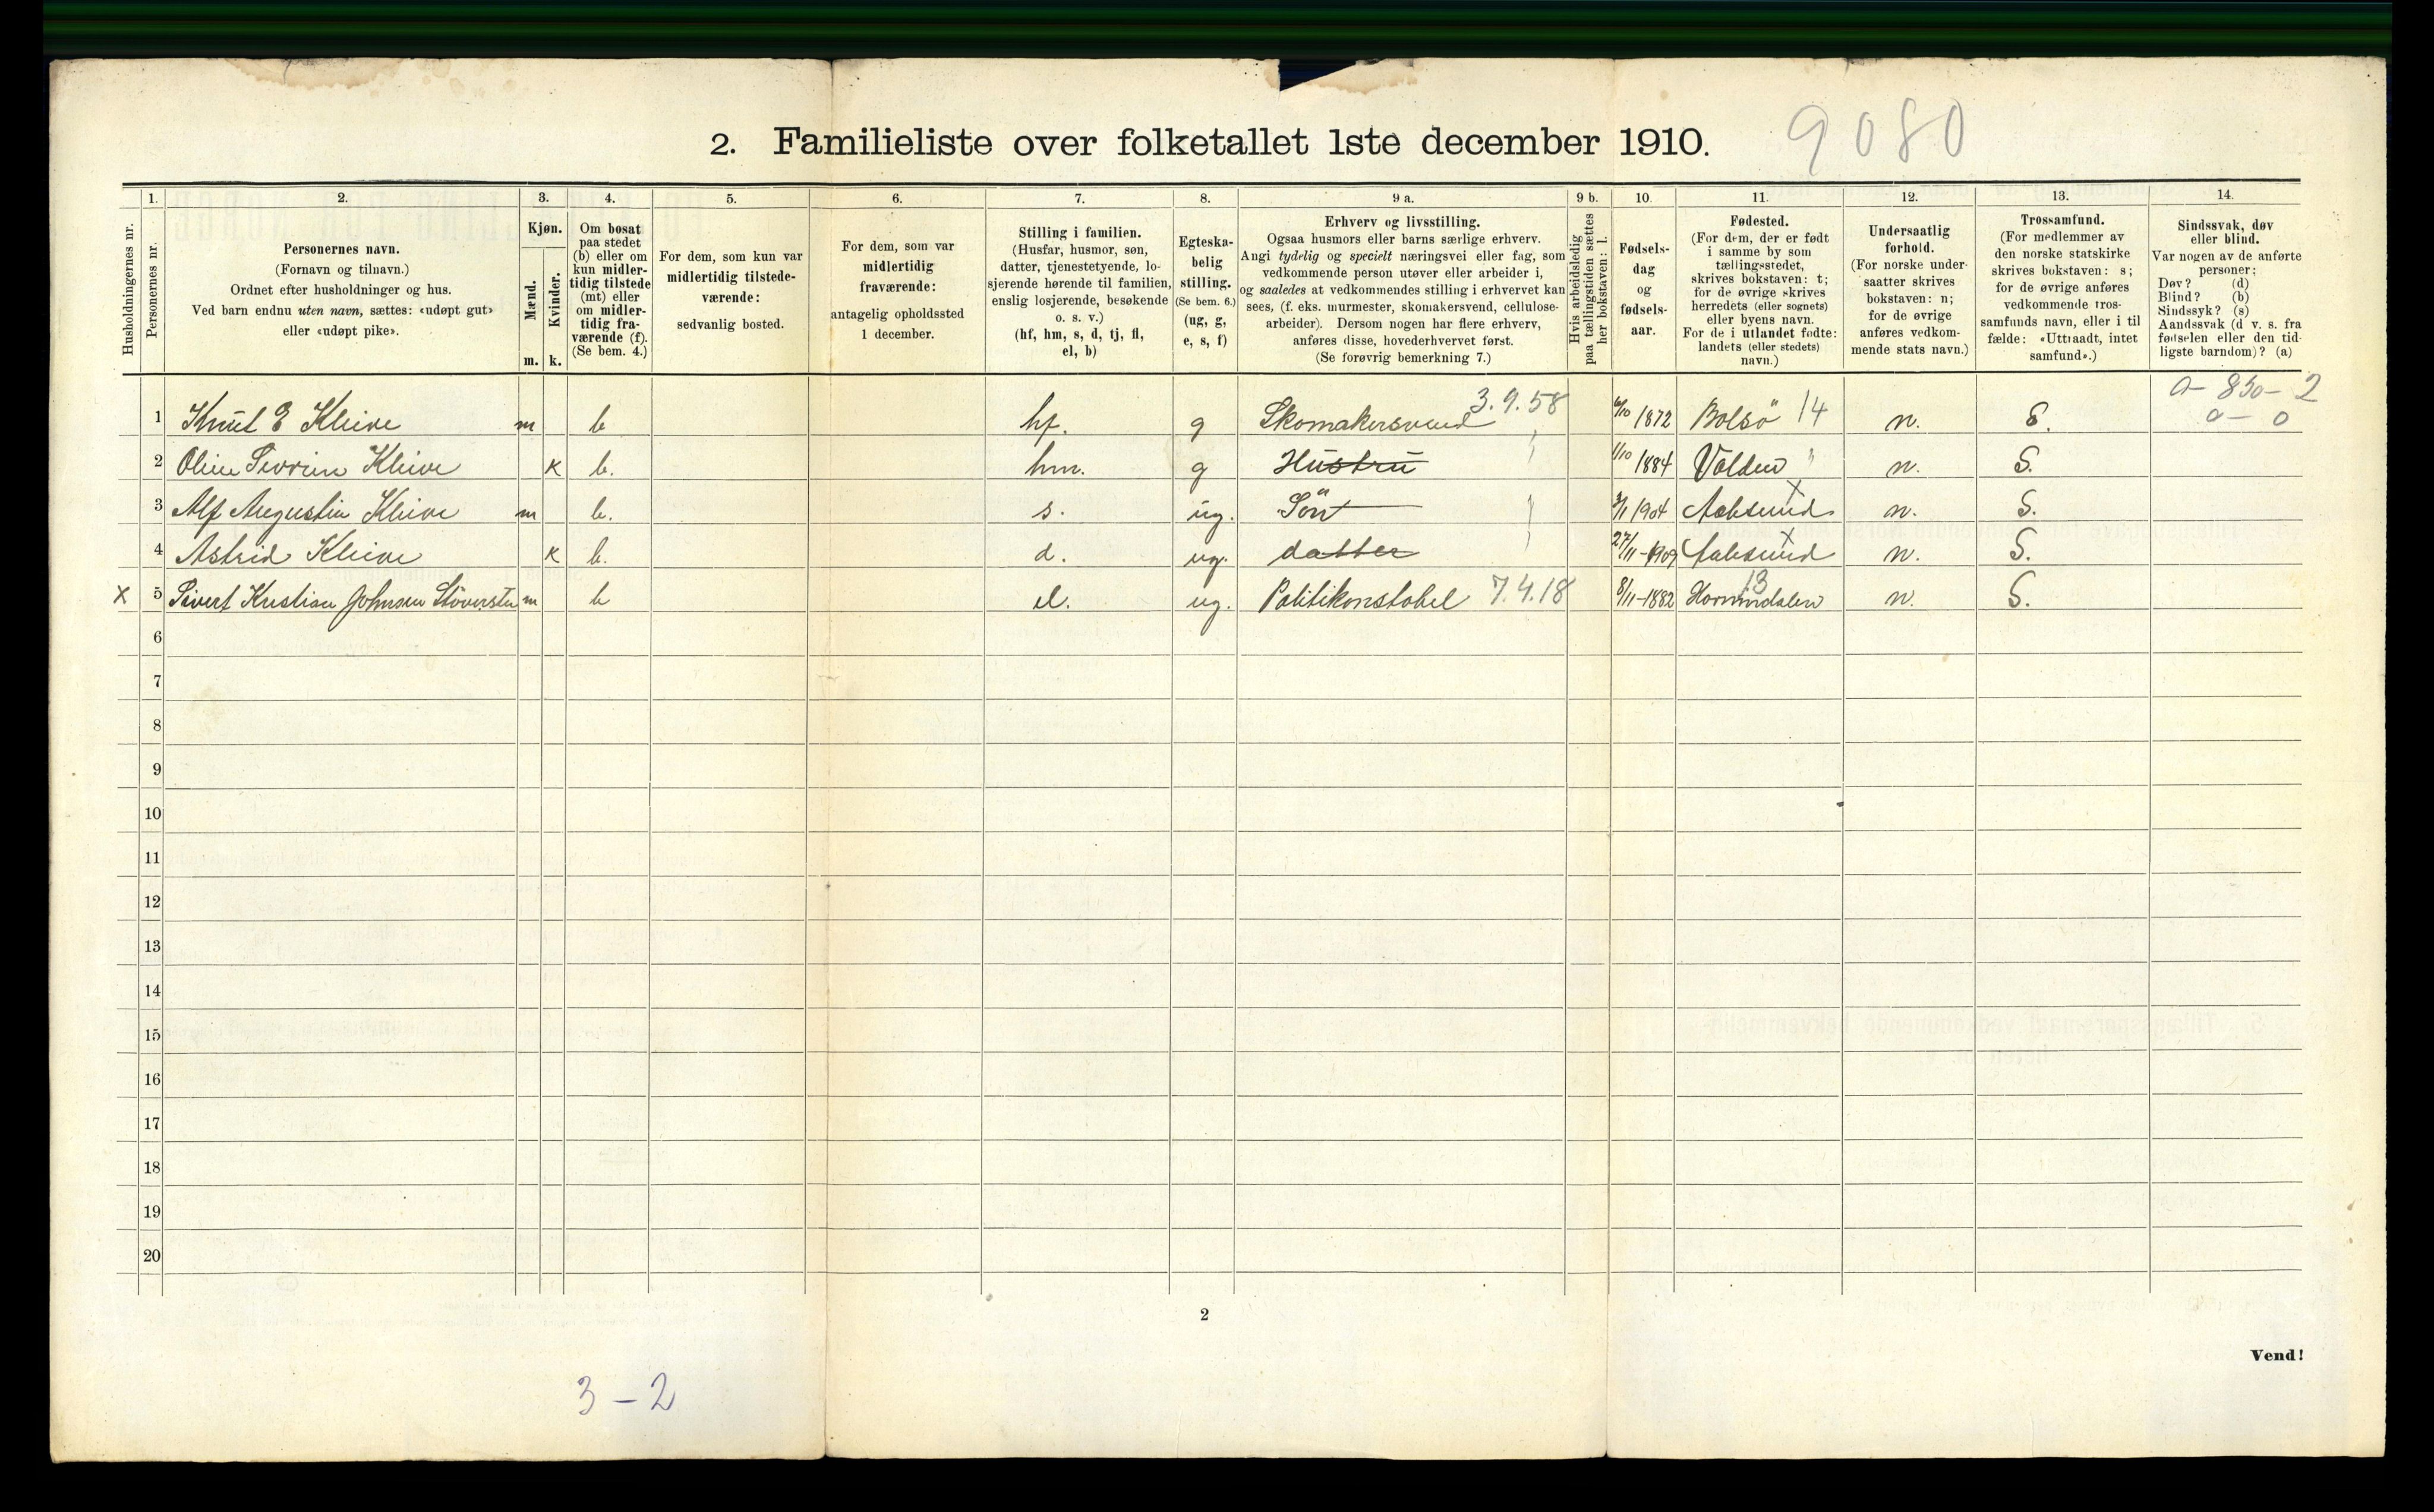 2. Familieliste over folketallet 1ste december 1910.
9080
Husholdningernes nr.
1. Personernes nr.
2. Personernes navn.
(Fornavn og tilnavn.)
Ordnet efter husholdninger og hus.
Ved barn endnu uten navn, sættes: «udøpt gut»
eller «udøpt pike».
3. Kjøn.
Mænd. m.
Kvinder. k.
4. Om bosat
paa stedet
(b) eller om
kun midler-
tidig tilstede
(mt) eller
om midler-
tidig fra-
værende (f).
(Se bem. 4.)
5. For dem, som kun var
midlertidig tilstede-
værende:
sedvanlig bosted.
6. For dem, som var
midlertidig
fraværende:
antagelig opholdssted
1 december.
7. Stilling i familien.
(Husfar, husmor, søn,
datter, tjenestetyende, lo-
sjerende hørende til familien,
enslig losjerende, besøkende
o. s. v.)
(hf, hm, s, d, tj, fl,
el, b)
8. Egteska-
belig
stilling.
(Se bem. 6.)
(ug, g,
e, s, f)
9 a. Erhverv og livsstilling.
Ogsaa husmors eller barns særlige erhverv.
Angi tydelig og specielt næringsvei eller fag, som
vedkommende person utøver eller arbeider i,
og saaledes at vedkommendes stilling i erhvervet kan
sees, (f. eks. murmester, skomakersvend, cellulose-
arbeider). Dersom nogen har flere erhverv,
anføres disse, hovederhvervet først.
(Se forøvrig bemerkning 7.)
9 b. Hvis arbeidsledig
paa tællingstiden sættes
her bokstaven: l.
10. Fødsels-
dag
og
fødsels-
aar.
11. Fødested.
(For dem, der er født
i samme by som
tællingsstedet,
skrives bokstaven: t;
for de øvrige skrives
herredets (eller sognets)
eller byens navn.
For de i utlandet fødte:
landets (eller stedets)
navn.)
12. Undersaatlig
forhold.
(For norske under-
saatter skrives
bokstaven: n;
for de øvrige
anføres vedkom-
mende stats navn.)
13. Trossamfund.
(For medlemmer av
den norske statskirke
skrives bokstaven: s;
for de øvrige anføres
vedkommende tros-
samfunds navn, eller i til
fælde: «Uttraadt, intet
samfund».)
14. Sindssvak, døv
eller blind.
Var nogen av de anførte
personer:
Døv? (d)
Blind? (b)
Sindssyk? (s)
Aandssvak (d v. s. fra
fødselen eller den tid-
ligste barndom)? (a)
0-850-2
1 Knut E Kleive m b hf. g Skomakersvend 3.9.58 1872 Bolsö 14 n. S. 0-0
2 Oline Sivrine Kleive k b. hm. g Hustru " 1/10 1884 Volden " n. S.
3 Alf Augustin Kleive m b. s. ug. Sön " 1904 Aalesund x n. S.
4 Astrid Kleive k b. d. ug. datter " 27/11-1909 Aalesund x n. S.
x 5 Sivert Kristian Johnsen m b el. ug. Politikonstabel 7.4.18 8/11-1882 Hornindalen 13 n. S.
6
7
8
9
10
11
12
13
14
15
16
17
18
19
20
2
Vend!
3-2